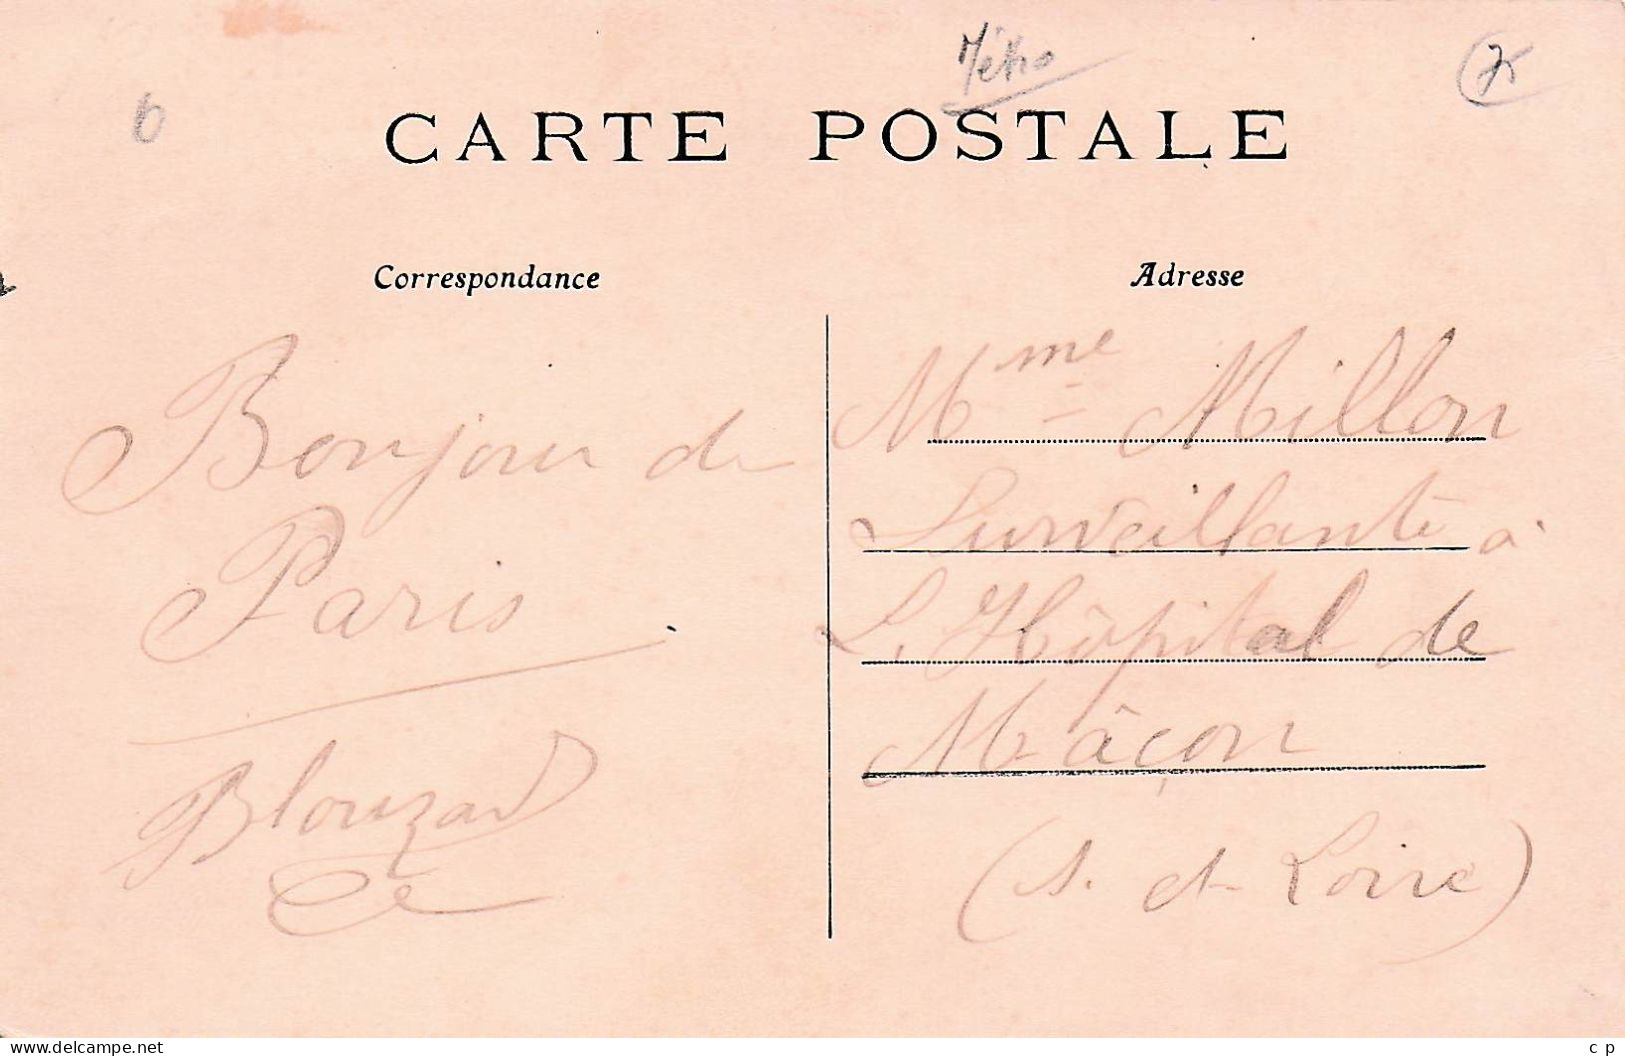 Métro
75
6
CARTE POSTALE
Correspondance
Bonjour de
Paris
Blouzard
Adresse
Mme Millon
Surveillante à
L'Hôpital de
Mâcon
(S. et Loire)
www.delcampe.net
c p